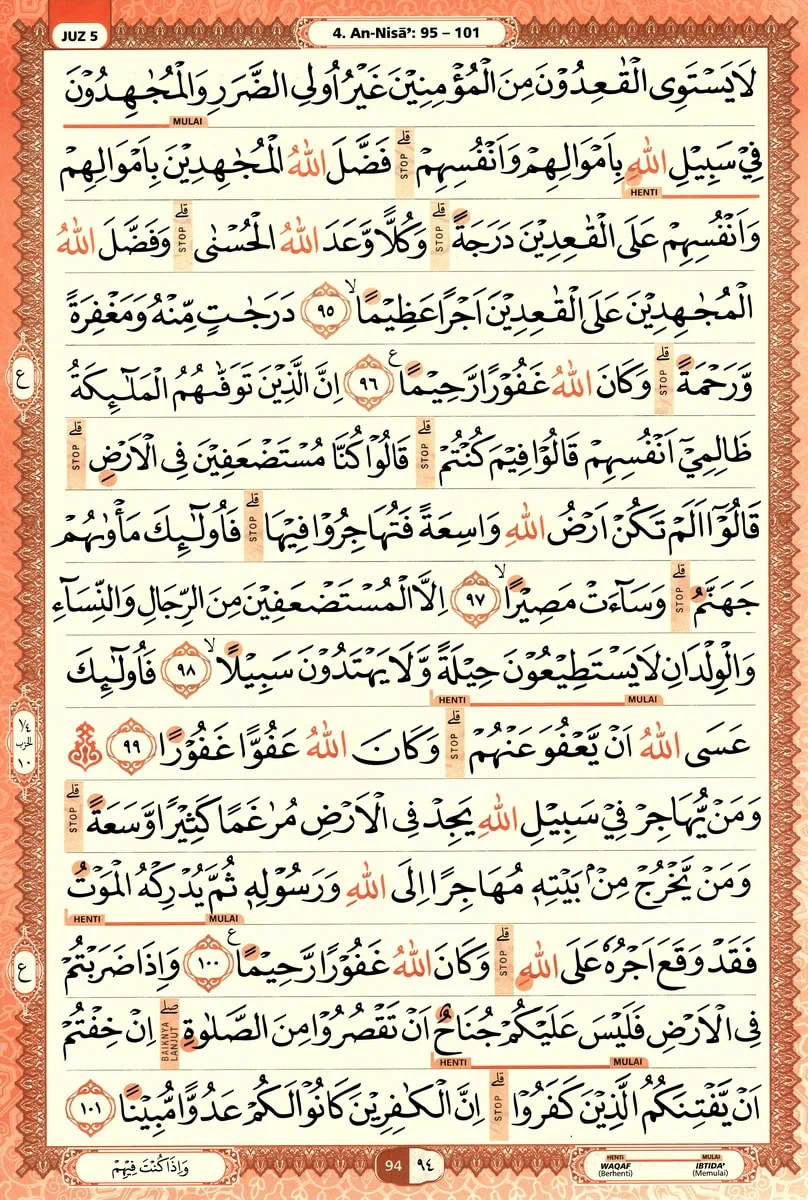 JUZ 5
4. An-Nisā': 95 – 101
لَا يَسْتَوِى الْقٰعِدُوْنَ مِنَ الْمُؤْمِنِيْنَ غَيْرُ اُولِى الضَّرَرِ وَالْمُجٰهِدُوْنَ
MULAI
فِيْ سَبِيْلِ اللّٰهِ بِاَمْوَالِهِمْ وَاَنْفُسِهِمْ ۗ STOP فَضَّلَ اللّٰهُ الْمُجٰهِدِيْنَ بِاَمْوَالِهِمْ
HENTI
وَاَنْفُسِهِمْ عَلَى الْقٰعِدِيْنَ دَرَجَةً ۗ STOP وَكُلًّا وَّعَدَ اللّٰهُ الْحُسْنٰى ۗ STOP وَفَضَّلَ اللّٰهُ
الْمُجٰهِدِيْنَ عَلَى الْقٰعِدِيْنَ اَجْرًا عَظِيْمًا ۙ ٩٥ دَرَجٰتٍ مِّنْهُ وَمَغْفِرَةً
وَّرَحْمَةً ۗ STOP وَكَانَ اللّٰهُ غَفُوْرًا رَّحِيْمًا ࣖ ٩٦ اِنَّ الَّذِيْنَ تَوَفّٰىهُمُ الْمَلٰۤىِٕكَةُ
ع
ظَالِمِيْٓ اَنْفُسِهِمْ قَالُوْا فِيْمَ كُنْتُمْ ۗ STOP قَالُوْا كُنَّا مُسْتَضْعَفِيْنَ فِى الْاَرْضِ ۗ STOP
قَالُوْٓا اَلَمْ تَكُنْ اَرْضُ اللّٰهِ وَاسِعَةً فَتُهَاجِرُوْا فِيْهَا ۗ STOP فَاُولٰۤىِٕكَ مَأْوٰىهُمْ
جَهَنَّمُ ۗ STOP وَسَاۤءَتْ مَصِيْرًا ۙ ٩٧ اِلَّا الْمُسْتَضْعَفِيْنَ مِنَ الرِّجَالِ وَالنِّسَاۤءِ
وَالْوِلْدَانِ لَا يَسْتَطِيْعُوْنَ حِيْلَةً وَّلَا يَهْتَدُوْنَ سَبِيْلًا ۙ ٩٨ فَاُولٰۤىِٕكَ
HENTI MULAI
عَسَى اللّٰهُ اَنْ يَّعْفُوَ عَنْهُمْ ۗ STOP وَكَانَ اللّٰهُ عَفُوًّا غَفُوْرًا ٩٩
١/٤ الحزب ١٠
وَمَنْ يُّهَاجِرْ فِيْ سَبِيْلِ اللّٰهِ يَجِدْ فِى الْاَرْضِ مُرٰغَمًا كَثِيْرًا وَّسَعَةً ۗ STOP
وَمَنْ يَّخْرُجْ مِنْۢ بَيْتِهٖ مُهَاجِرًا اِلَى اللّٰهِ وَرَسُوْلِهٖ ثُمَّ يُدْرِكْهُ الْمَوْتُ
HENTI MULAI
فَقَدْ وَقَعَ اَجْرُهٗ عَلَى اللّٰهِ ۗ STOP وَكَانَ اللّٰهُ غَفُوْرًا رَّحِيْمًا ࣖ ١٠٠ وَاِذَا ضَرَبْتُمْ
ع
فِى الْاَرْضِ فَلَيْسَ عَلَيْكُمْ جُنَاحٌ اَنْ تَقْصُرُوْا مِنَ الصَّلٰوةِ ۖ BAIKNYA LANJUT اِنْ خِفْتُمْ
HENTI MULAI
اَنْ يَّفْتِنَكُمُ الَّذِيْنَ كَفَرُوْا ۗ STOP اِنَّ الْكٰفِرِيْنَ كَانُوْا لَكُمْ عَدُوًّا مُّبِيْنًا ١٠١
وَاِذَا كُنْتَ فِيْهِمْ
94 ٩٤
HENTI MULAI
WAQAF IBTIDA'
(Berhenti) (Memulai)